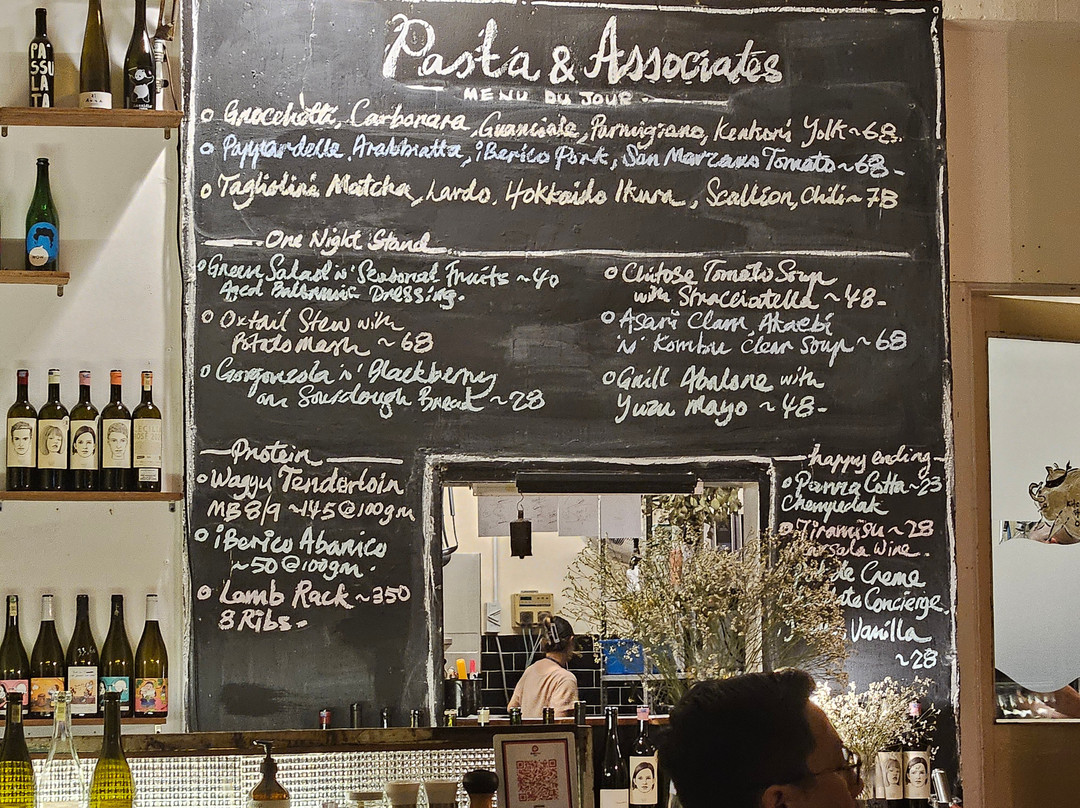 PASSULATA
Pasta & Associates
MENU DU JOUR
Gnocchetti, Carbonara, Guanciale, Parmigiano, Kenkori Yolk ~ 68.
Pappardelle, Arabbiatta, iBerico Pork, San Marzano Tomato ~ 68-
Tagliolini Matcha, Lardo, Hokkaido Ikura, Scallion, Chili ~ 78
One Night Stand
Green Salad 'n' Seasonal Fruits ~ 40
Aged Balsamic Dressing.
Oxtail Stew with
Potato Mash ~ 68
Gorgonzola 'n' Blackberry
on Sourdough Bread ~ 28
Chitose Tomato Soup
with Stracciatella ~ 48-
Asari Clam, Akaebi
'n' Kombu Clear Soup ~ 68
Grill Abalone with
Yuzu Mayo ~ 48-
Protein
Wagyu Tenderloin
MB 8/9 ~ 145 @ 100gm
iBerico Abanico
~ 50 @ 100gm.
Lamb Rack ~ 350
8 Ribs-
happy ending
Panna Cotta ~ 23
Chempedak
Tiramisu ~ 28
Marsala Wine.
de Creme
Concierge.
Vanilla
~ 28